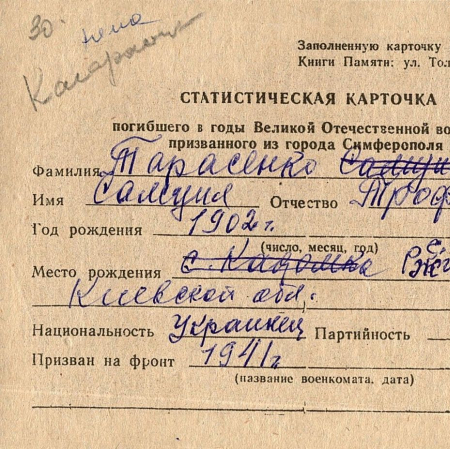 30.
Заполненную карточку
Книги Памяти: ул. Тол
СТАТИСТИЧЕСКАЯ КАРТОЧКА
погибшего в годы Великой Отечественной во
призванного из города Симферополя
Фамилия Тарасенко
Имя Самуил Отчество Троф
Год рождения 1902 г.
(число, месяц, год)
Место рождения с.
Киевской обл.
Национальность Украинец Партийность
Призван на фронт 1941 г
(название военкомата, дата)